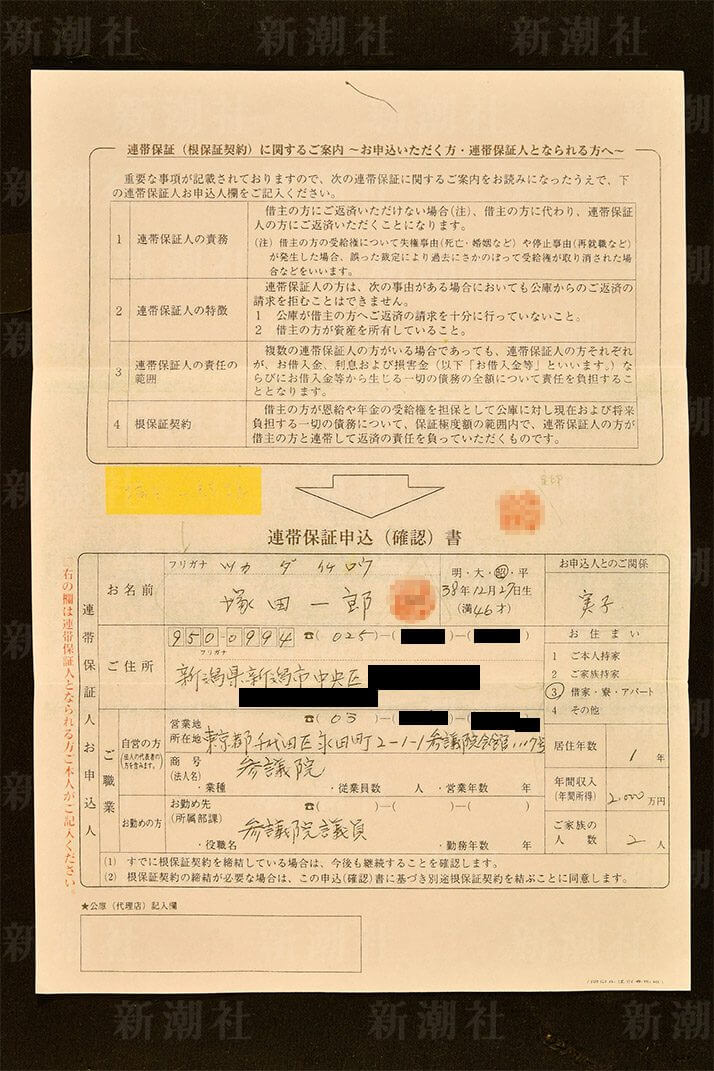 新潮社
連帯保証（根保証契約）に関するご案内 ～お申込いただく方・連帯保証人となられる方へ～
重要な事項が記載されておりますので、次の連帯保証に関するご案内をお読みになったうえで、下
の連帯保証人お申込人欄をご記入ください。
1 連帯保証人の責務
借主の方にご返済いただけない場合(注)、借主の方に代わり、連帯保証
人の方にご返済いただくことになります。
(注) 借主の方の受給権について失権事由(死亡・婚姻など) や停止事由(再就職など)
が発生した場合、誤った裁定により過去にさかのぼって受給権が取り消された場
合などをいいます。
2 連帯保証人の特徴
連帯保証人の方は、次の事由がある場合においても公庫からのご返済の
請求を拒むことはできません。
1 公庫が借主の方へご返済の請求を十分に行っていないこと。
2 借主の方が資産を所有していること。
3 連帯保証人の責任の
範囲
複数の連帯保証人の方がいる場合であっても、連帯保証人の方それぞれ
が、お借入金、利息および損害金（以下「お借入金等」といいます。）な
らびにお借入金等から生じる一切の債務の全額について責任を負担するこ
ととなります。
4 根保証契約
借主の方が恩給や年金の受給権を担保として公庫に対し現在および将来
負担する一切の債務について、保証極度額の範囲内で、連帯保証人の方が
借主の方と連帯して返済の責任を負っていただくものです。
連帯保証申込（確認）書
右の欄は連帯保証人となられる方ご本人がご記入ください。
連帯保証人お申込人
お名前
フリガナ ツカダ イチロウ
塚田一郎
明・大・昭・平
38年12月27日生
(満46才)
お申込人とのご関係
実子
ご住所
950-0994 ☎(025)―( )―( )
フリガナ
新潟県新潟市中央区
お住まい
1 ご本人持家
2 ご家族持家
3 借家・寮・アパート
4 その他
ご職業
自営の方
(法人の代表者の方を含みます。)
☎(03)―( )―( )
営業地
所在地 東京都千代田区永田町2-1-1参議院会館1117号
商号
(法人名) 参議院
・業種 ・従業員数 人 ・営業年数 年
居住年数
1年
年間収入
(年間所得) 2,000万円
お勤めの方
お勤め先
(所属部課)
☎( )―( )―( )
参議院議員
・役職名 ・勤務年数 年
ご家族の
人数 2人
(1) すでに根保証契約を締結している場合は、今後も継続することを確認します。
(2) 根保証契約の締結が必要な場合は、この申込(確認)書に基づき別途根保証契約を結ぶことに同意します。
★公庫（代理店）記入欄